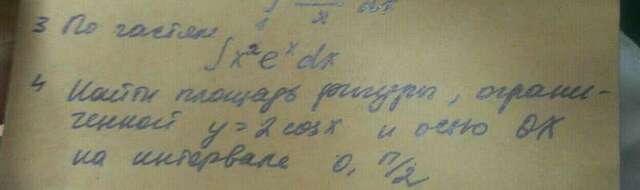 3 По частям
∫x²eˣdx
4 Найти площадь фигуры, ограни-
ченной y = 2cosx и осью OX
на интервале 0, π/2